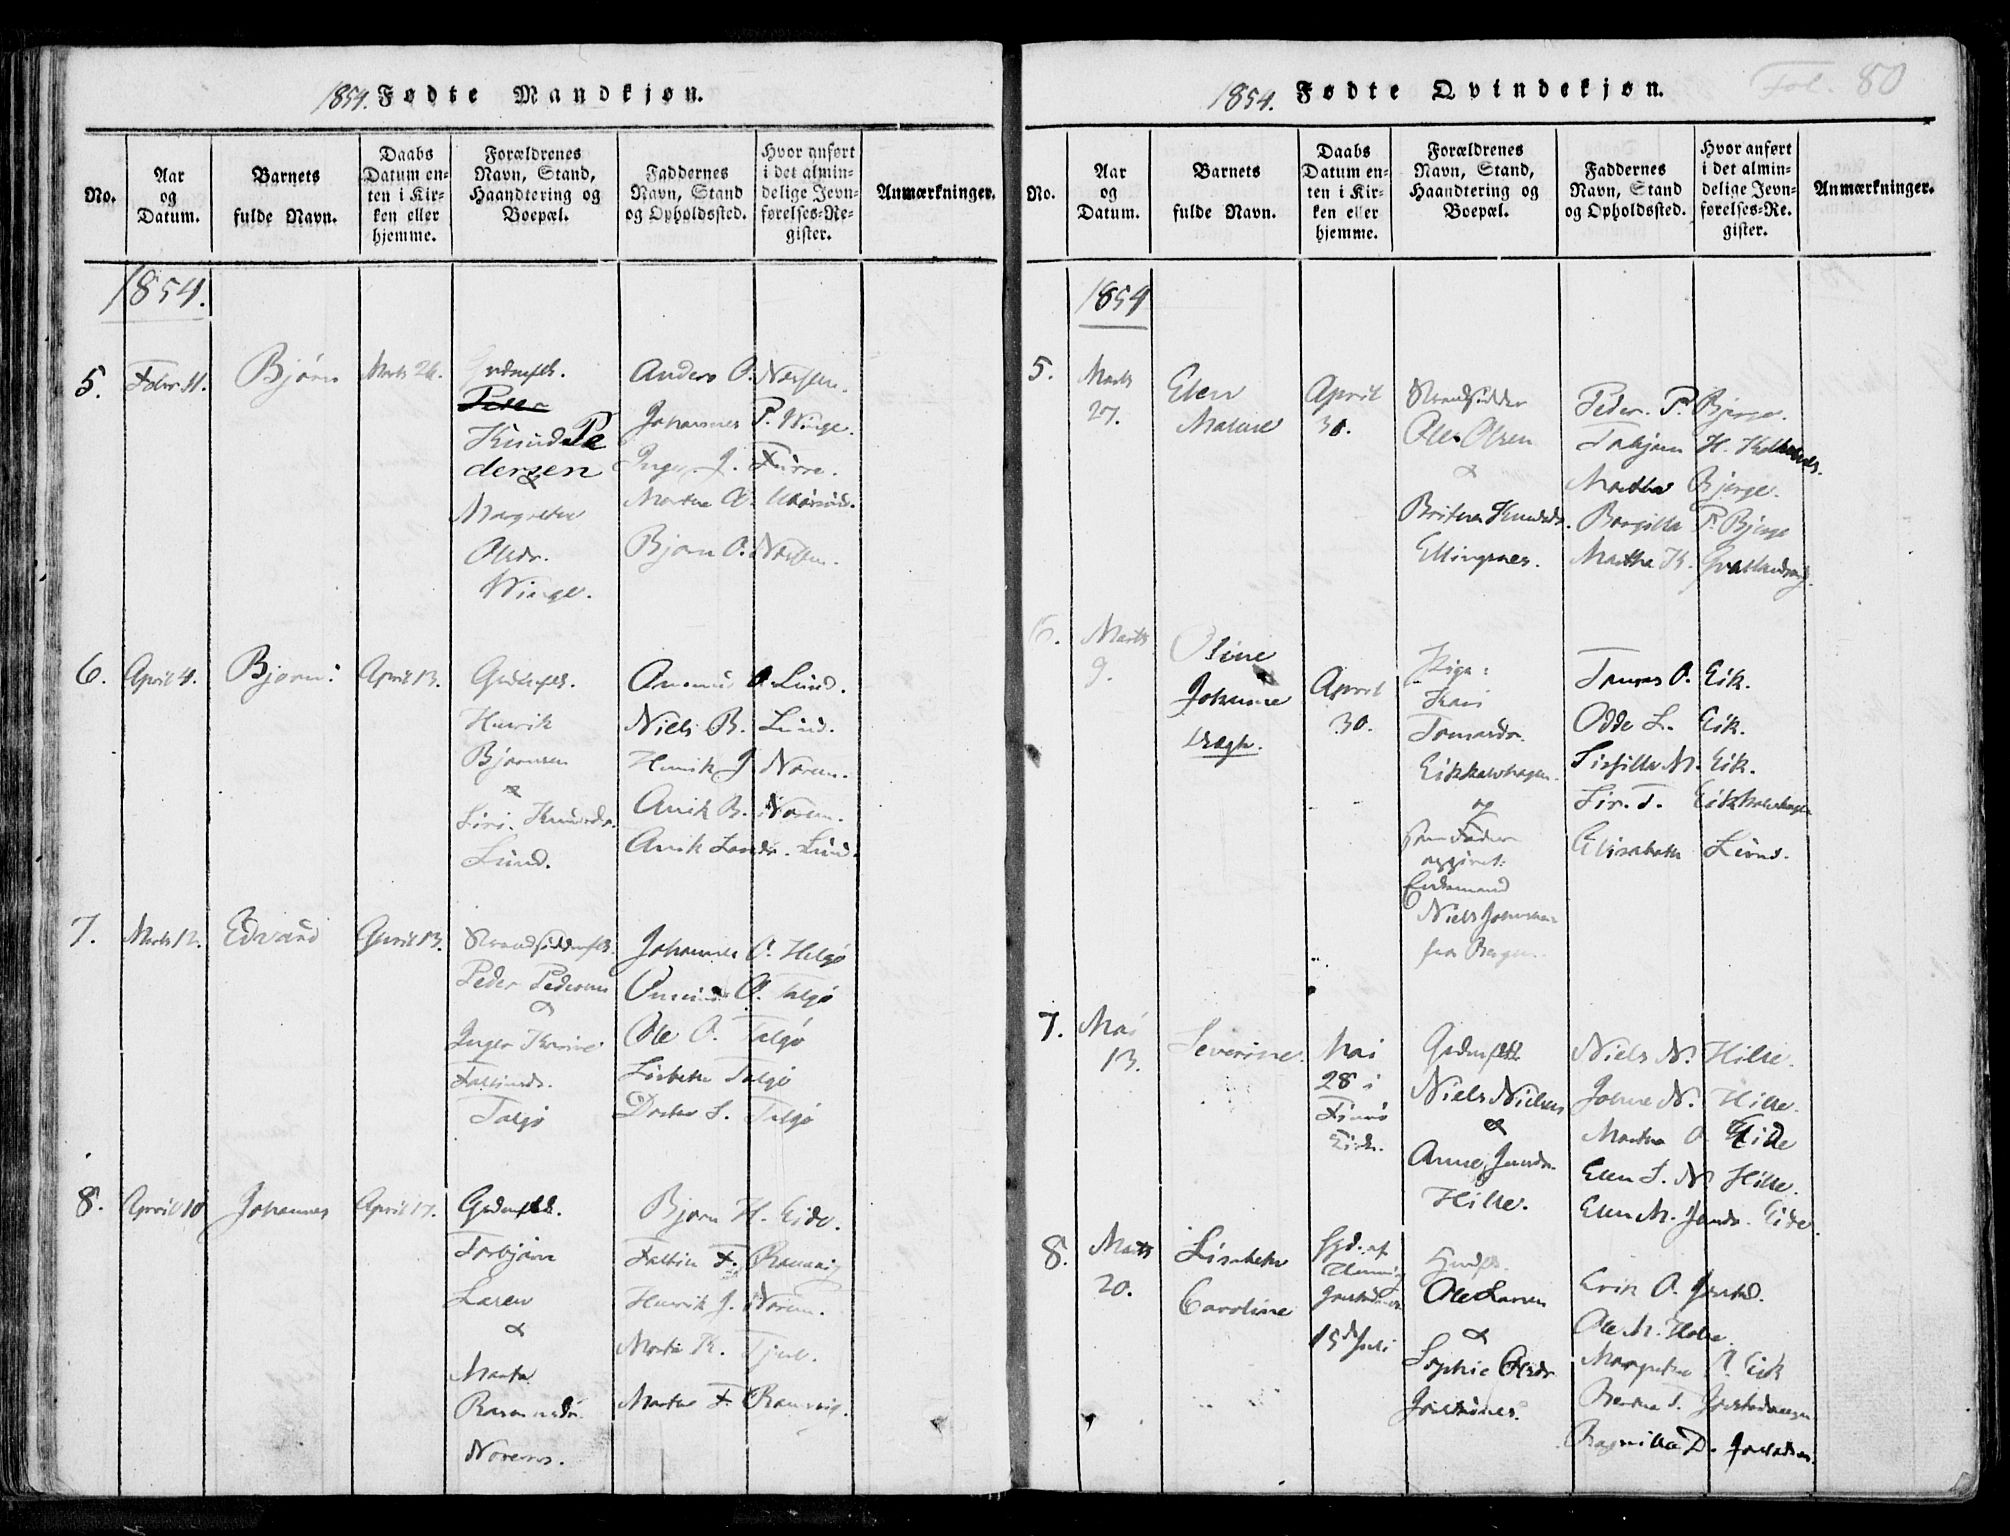 1854. Fødte Mandkjøn.
No.
Aar og Datum.
Barnets fulde Navn.
Daabs Datum enten i Kirken eller hjemme.
Forældrenes Navn, Stand, Haandtering og Boepæl.
Faddernes Navn, Stand og Opholdssted.
Hvor anført i det almindelige Jevnførelses-Register.
Anmærkninger.
1854.
5.
Febr 11.
Bjørn
Marts 26.
Peder
Knud Pe
dersen
&
Margrethe
Olsdr.
Winge.
Anders O.
Johannes P. Winge.
Inger J. Furre.
Martha O.
Bjørn O.
6.
April 4.
Bjørn
April 13.
Grdmfk.
Henrik
Bjørnsen
&
Siri Knudsdr.
Lund.
Omund O. Lund.
Niels B. Lund.
Henrik J. Norem.
Anik B. Norem.
Anik Larsdr. Lund.
7.
Marts 12.
Edvard
April 13.
Strandsidderfk.
Peder Pedersen
&
Inger Karine
Talgø
Johannes O. Helgø
Omund O. Talgø
Ole O. Talgø
Lisbeth Talgø
Dorthe S. Talgø
8.
April 10
Johannes
April 17.
Grdmfk.
Torbjørn
Larsen
&
Marta
Rasmusdr.
Norem.
Bjørn H. Eide.
Falkin F. Ramsvig
Henrik J. Norem.
Marta K.
Martha F. Ramsvig.
1854. Fødte Qvindekjøn.
Fol. 80
No.
Aar og Datum.
Barnets fulde Navn.
Daabs Datum enten i Kirken eller hjemme.
Forældrenes Navn, Stand, Haandtering og Boepæl.
Faddernes Navn, Stand og Opholdssted.
Hvor anført i det almindelige Jevnførelses-Re. gister.
Anmærkninger.
1854
5.
Marts
27.
Elen
Malene
April
30.
Strandsidder
Ole Olsen
&
Britha Knudsdr.
Ellingsnes.
Peder P. Bjerge.
Torbjørn H.
Martha Bjerge.
Borgilla P. Bjerge
Martha K.
6.
Marts
9.
Oline
Johanne
April
30.
Pige:
Kari
Tomasdr.
Eikkelvhagen
og
som Fader
opgivet:
Enkemand
Niels Johannesen
fra Bergen.
Tomas O. Eik.
Odde L. Eik.
Sissilla M. Eik.
Siri T. Eikkelvhagen
Elisabeth Lund.
7.
Mai
13.
Severine.
Mai
28 i
Finnø
Kirke.
Grdmfk.
Niels Nielsen
&
Anne Jensdr.
Hille.
Niels N. Hille.
Johanne N. Hille.
Martha O. Eide
Elen S. N. Hille.
Elen M. Jensdr. Eide
8.
Marts
20.
Lisabeth
Caroline
15de Juli
Ole Larsen
&
Sophie Olsdr
Erik O. Jorstad.
Ole M.
Margretha O. Eik
Bertha T.
Ragnilla D.